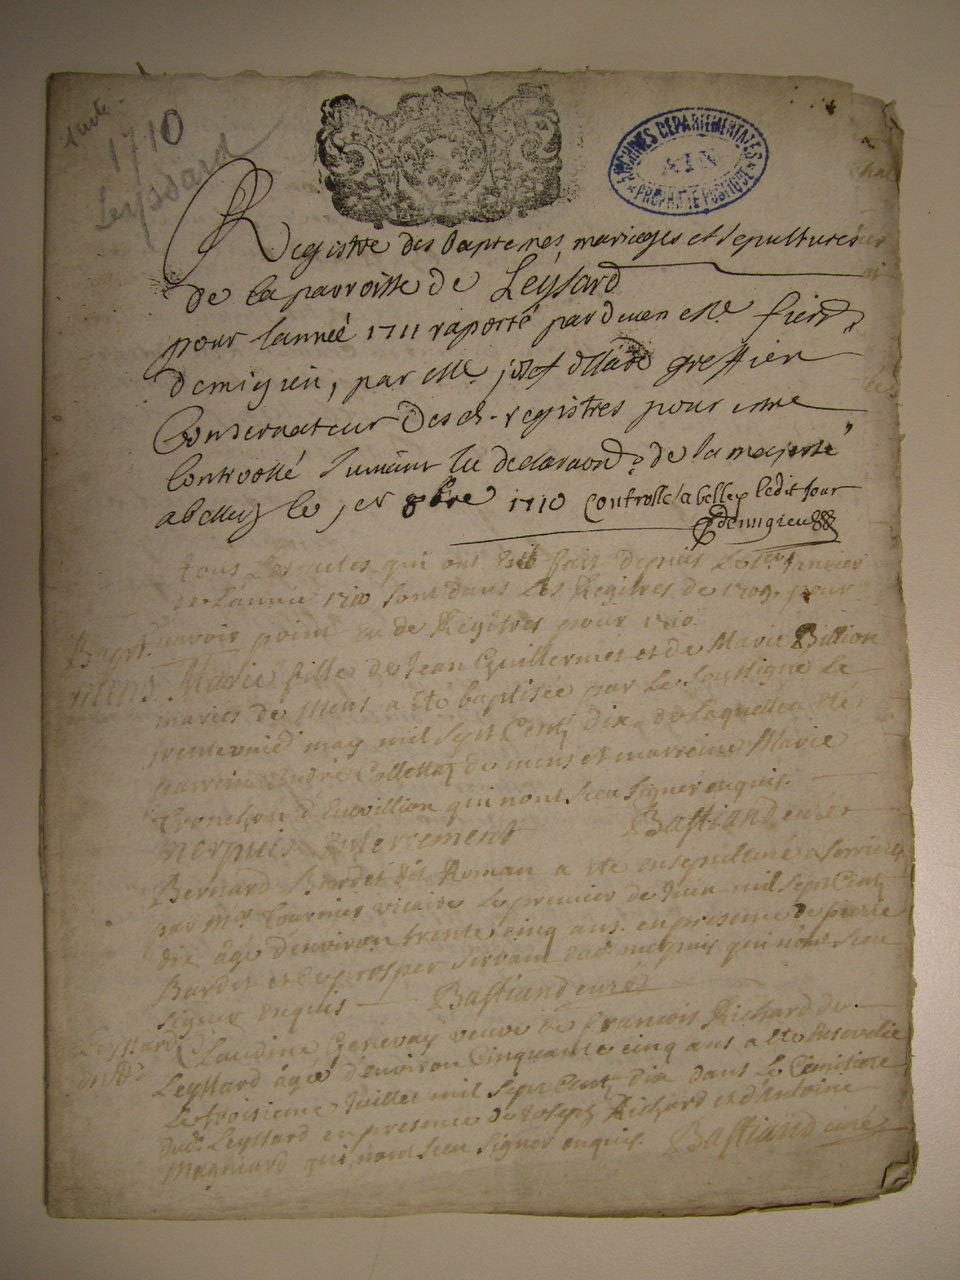 1710
Leyssard
ARCHIVES DEPARTEMENTALES
AIN
PROPRIETE PUBLIQUE
Registre des baptemes mariages et sepultures
de la parroisse de Leyssard
pour lannéé 1711 raporté par
demigieu, par Me josef greffier
Conservateur desd. registres pour estre
Controllé suivant la de de sa majesté
a belley le jer 8bre 1710 Controllé a belley ledit jour
Demigieu
tous Les actes qui ont esté fait depuis Le 1er Janvier
de Lannée 1710 sont dans Les Regitres de 1709 pour
navoir point eu de Regitres pour 1710.
Bapt.
mens Marie fille de Jean Guillermet et de Marie Billion
mariés de mens a été baptisée par Le soussigné Le
may mil sept Cent dix de Laquelle a été
parrein André de mens et marreine Marie
qui nont sceu signer enquis.
merpuis Enterrement Bastiand curé
Bernard Bardet dit Roman a été ensepulturé a serrieres
par Mr. Tournier vicaire Le premier de Juin mil sept Cent
dix âgé denviron trente cinq ans en presence de pierre
Bardet et de prosper Servant dud. merpuis qui nont sceu
signer enquis Bastiand curé
Leyssard Claudine Genevay veuve de francois Richard de
Leyssard âgée denviron Cinquante cinq ans a été ensevelie
Le troisieme Juillet mil sept Cent dix dans Le Cemitiere
dud. Leyssard en presence de Joseph Richard et d'Antoine
Magniard qui nont sceu signer enquis. Bastiand curé